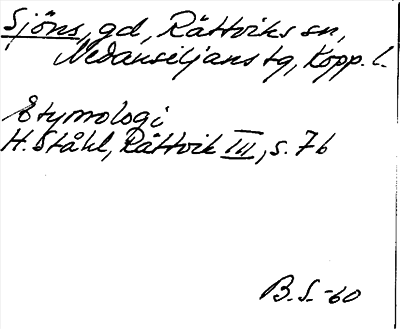 Sjöns, gd, Rättviks sn,
Nedansiljans tg, Kopp. l.
Etymologi
H. Ståhl, Rättvik III, s. 76
B. S. -60